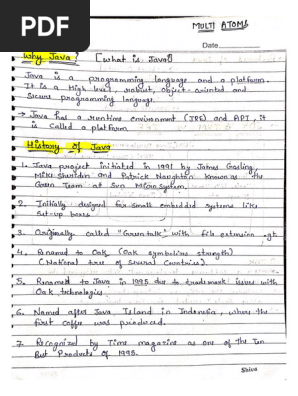 PDF
MULTI ATOMS
Date
Why Java? [What is Java?]
Java is a programming language and a platform.
It is a High level, robust, object-oriented and
Secure programming language.
→ Java has a runtime environment (JRE) and API, it
is Called a platform
History of Java
1. Java project initiated in 1991 by James Gosling,
Mike Sheridan and Patrick Naughton known as the
Green Team at Sun MicroSystem.
2. Initially designed for small embedded systems like
Set-up boxes
3. Originally called "Greentalk" with file extension .gt
4. Renamed to Oak, (Oak symbolizes strength)
(National tree of Several Countries).
5. Renamed to Java in 1995 due to trademark issues with
Oak technologies
6. Named after Java Island in Indonesia, where the
first Coffee was produced.
7. Recognized by Time magazine as one of the Ten
Best Products of 1995.
Shiva